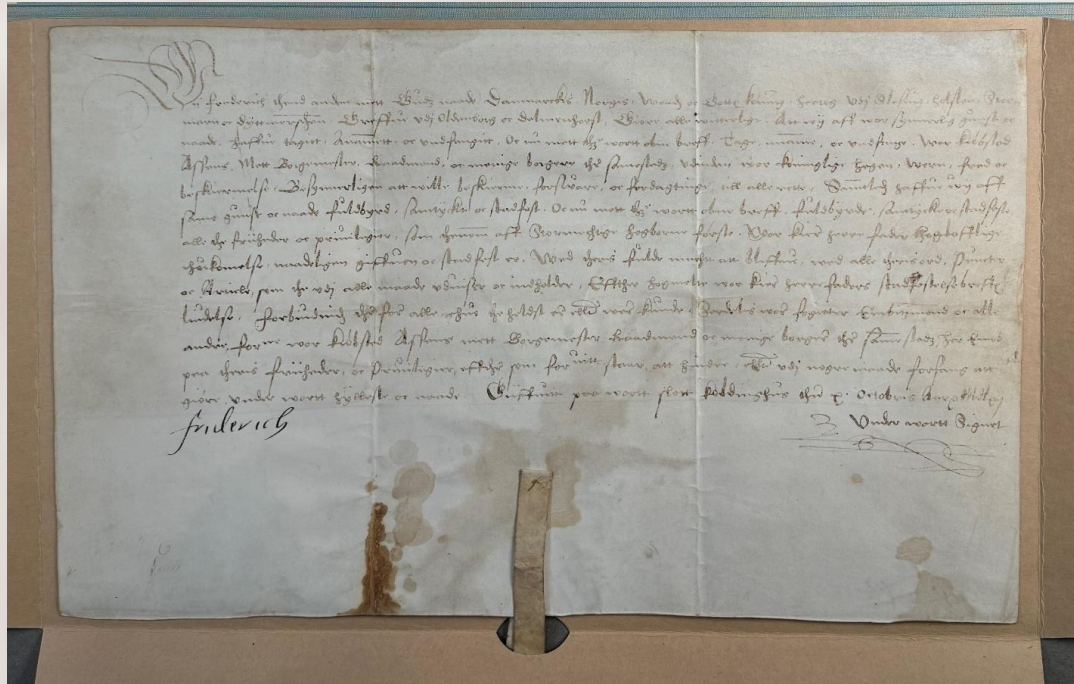 Wii Frederich thend anden mett Gudz naade Danmarckis Norgis, Wendis oc Gottis Kunning, hertug vdj Slesuig, holsten, Stor-
marn oc dyttmerschen, Greffue vdj Oldenborg oc delmenhorst, Giøre alle witterligt, Att wy aff wor synnerlig gunst oc
naade, haffue tagitt, Anammitt oc vndfangitt, Oc nu mett thz wortt obne breff, Tage, anamme, oc vndfange, Wor kiøbsted
Assens, Mett Borgemester, Raadmend, oc menige borgere ther samestedz vdinden wor koninglige hegen, wern, fred oc
beskermelse, Besynnerligen att wille beskerme, forsuare, oc fordagtinge, till alle rette, Sameledis haffue wy aff
samme gunst oc naade fuldbyrd, samtyckt oc stadfest, Oc nu mett thz wortt obne breff, fuldbyrde, samtycke oc stadfeste
alle the friiheder oc priuilegier, som thennom aff Stormectige høgborne første, Wor kiere herre fader høglofflige
ihukommelse, naadeligen giffuen oc stadfest er, Wed theris fulde macht att bliffue, wed alle theris ord, Puncter
oc Article, som the vdj alle maade vduiser oc indeholder, Effther høgmelte wor kiere herre faders stadfestelse breffs
liudelse, Forbiudendis alle ehuo the helst ere eller were kunde, Serdelis wore fogeter Embitzmend oc alle
andre, forne wor kiøbsted Assens mett Borgemester Raadmend oc menige borgere ther samestedz her emod
paa theris friiheder, oc Priuilegier, effther som foruitt staar, att hindre, eller vdj nogre maade forfang att
giøre vnder wortt hyllest oc naade Giffuitt paa wortt slott koldinghus then x Octobris Aar
Vnder wortt Signet
friderich